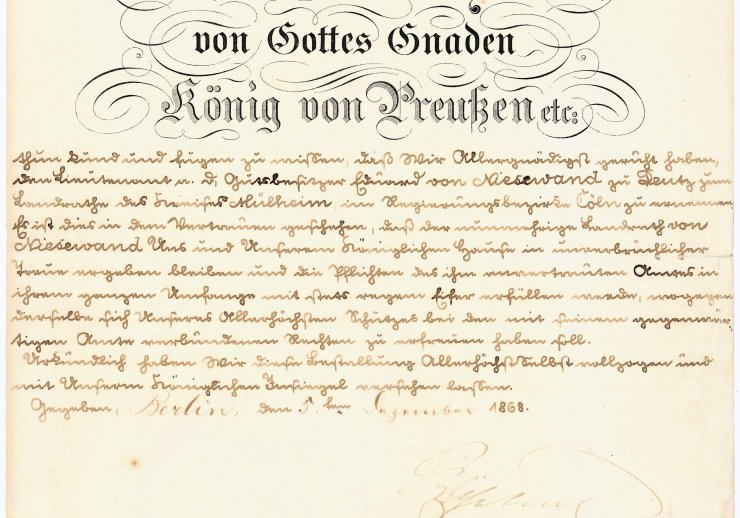 von Gottes Gnaden
König von Preußen etc:
thun kund und fügen zu wissen, daß Wir Allergnädigst geruht haben,
den Lieutenant a. D, Gutsbesitzer Eduard von Niesewand zu Deutz zum
Landrathe des Kreises Mülheim im Regierungsbezirke Cöln zu ernennen
Es ist dies in dem Vertrauen geschehen, daß der nunmehrige Landrath von
Niesewand Uns und Unserem Königlichen Hause in unverbrüchlicher
Treue ergeben bleiben und die Pflichten des ihm anvertrauten Amtes in
ihrem ganzen Umfange mit stets regem Eifer erfüllen werde, wogegen
derselbe sich Unseres Allerhöchsten Schutzes bei den mit seinem gegenwär-
tigen Amte verbundenen Rechten zu erfreuen haben soll.
Urkundlich haben Wir diese Bestallung AllerhöchstSelbst vollzogen und
mit Unserm Königlichen Insiegel versehen lassen.
Gegeben, Berlin, den 5.ten Dezember 1868.